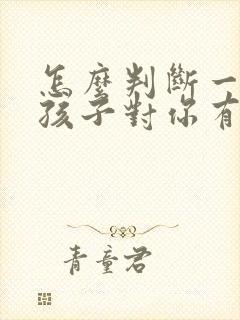 怎麼判斷一
孩子對你有
青童君